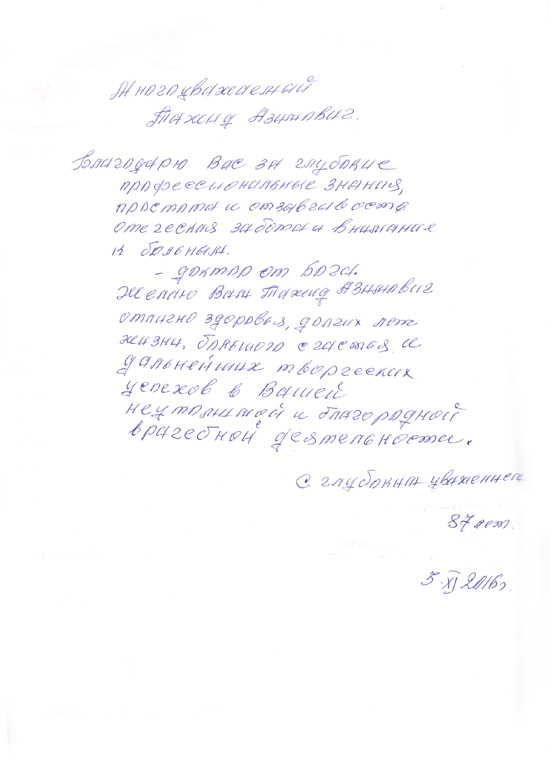 Многоуважаемый
Тахид Азимович.
Благодарю Вас за глубокие
профессиональные знания,
простота и отзавчивость
отеческая забота и внимание
к больным.
– доктор от Бога.
Желаю Вам Тахид Азимович
отлично здоровья, долгих лет
жизни, большого счастья и
дальнейших творческих
успехов в Вашей
неутомимой и благородной
врачебной деятельности.
С глубоким уважением
87 лет.
3.XI 2016г.